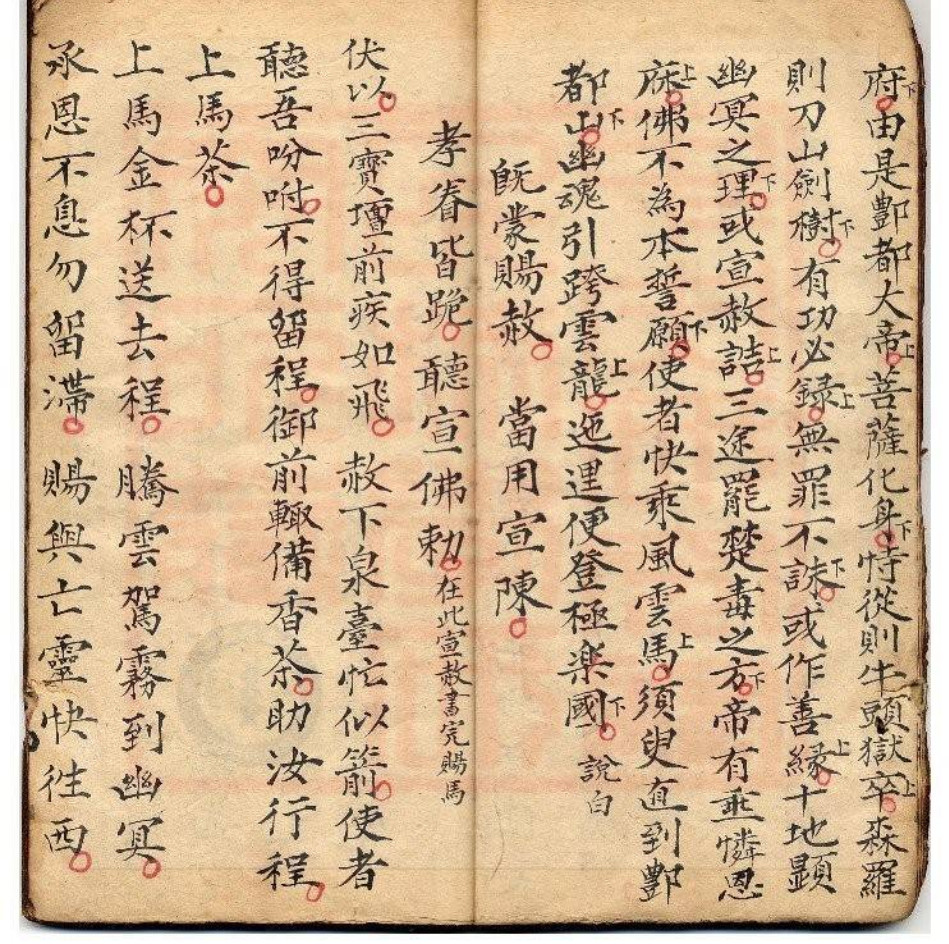 府由是酆都大帝菩薩化身恃從則牛頭獄卒森羅
則刀山劍樹有功必録無罪不誅或作善縁十地顕
幽冥之理或宣赦誥三途罷楚毒之方帝有垂憐恩
庥佛不為本誓願使者快乘風雲馬須臾直到酆
都山幽魂引跨雲龍迤逕便登極楽國 說白
旣蒙賜赦 當用宣陳
孝眷皆跪聽宣佛勅在此宣赦書完賜馬
伏以三寳壇前疾如飛赦下泉臺忙似箭使者
聽吾吩咐不得留程御前輙備香茶助汝行程
上馬茶
上馬金杯送去程騰雲駕霧到幽冥
承恩不息勿留滯賜與亡靈快徃西